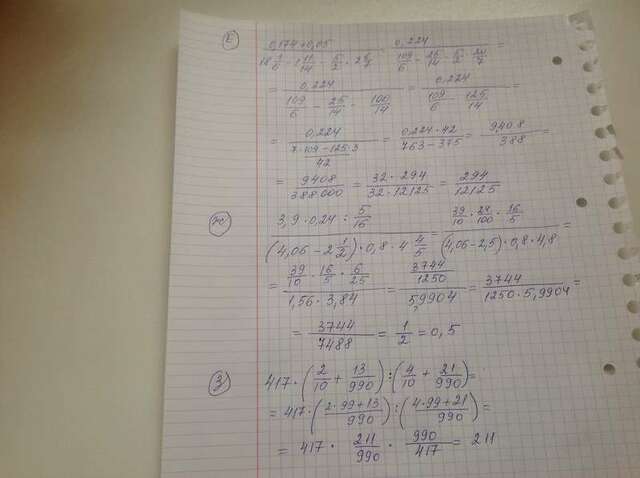 е)
(0,174+0,05)/(18 1/6 - 1 11/14 - 5/2 · 2 6/7) = 0,224/(109/6 - 25/14 - 5/2 · 20/7) =
= 0,224/(109/6 - 25/14 - 100/14) = 0,224/(109/6 - 125/14) =
= 0,224/((7·109-125·3)/42) = (0,224·42)/(763-375) = 9,408/388 =
= 9408/388000 = (32·294)/(32·12125) = 294/12125
ж)
(3,9·0,24 : 5/16)/((4,06-2 1/2)·0,8·4 4/5) = (39/10 · 24/100 · 16/5)/((4,06-2,5)·0,8·4,8) =
= (39/10 · 16/5 · 6/25)/(1,56·3,84) = (3744/1250)/5,9904 = 3744/(1250·5,9904) =
= 3744/7488 = 1/2 = 0,5
з)
417·(2/10 + 13/990):(4/10 + 21/990) =
= 417·((2·99+13)/990):((4·99+21)/990) =
= 417 · 211/990 · 990/417 = 211